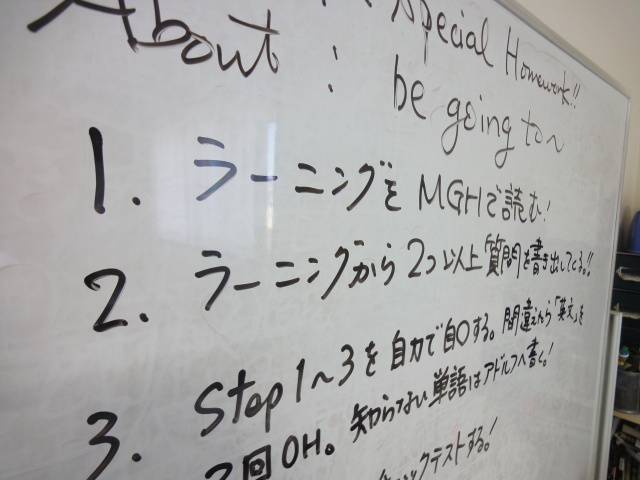 Special Homework!!
About : be going to~
1. ラーニングを MGHで読む!
2. ラーニングから2つ以上質問を書き出してくる!!
3. Step 1~3を自力で自〇する。間違えたら「英文」を
回OH。知らない単語はアドルフへ書く。!
ックテストする!